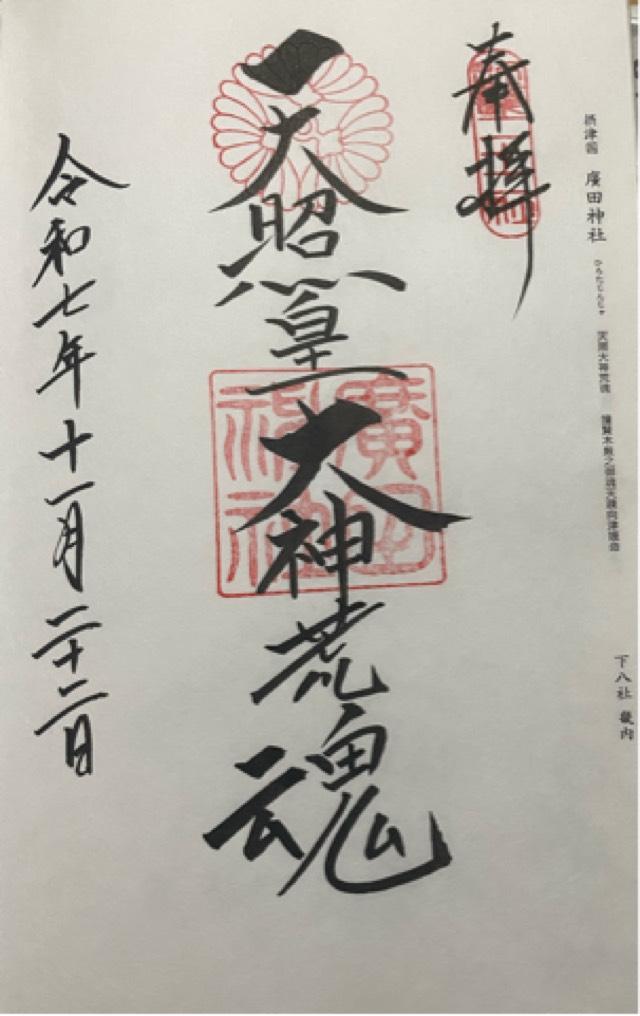 摂津国 廣田神社 ひろたじんじゃ 天照大神荒魂 撞賢木厳之御魂天疎向津媛命
下八社 畿内
奉拝
天照皇大神荒魂
廣田神社
令和七年十一月二十二日